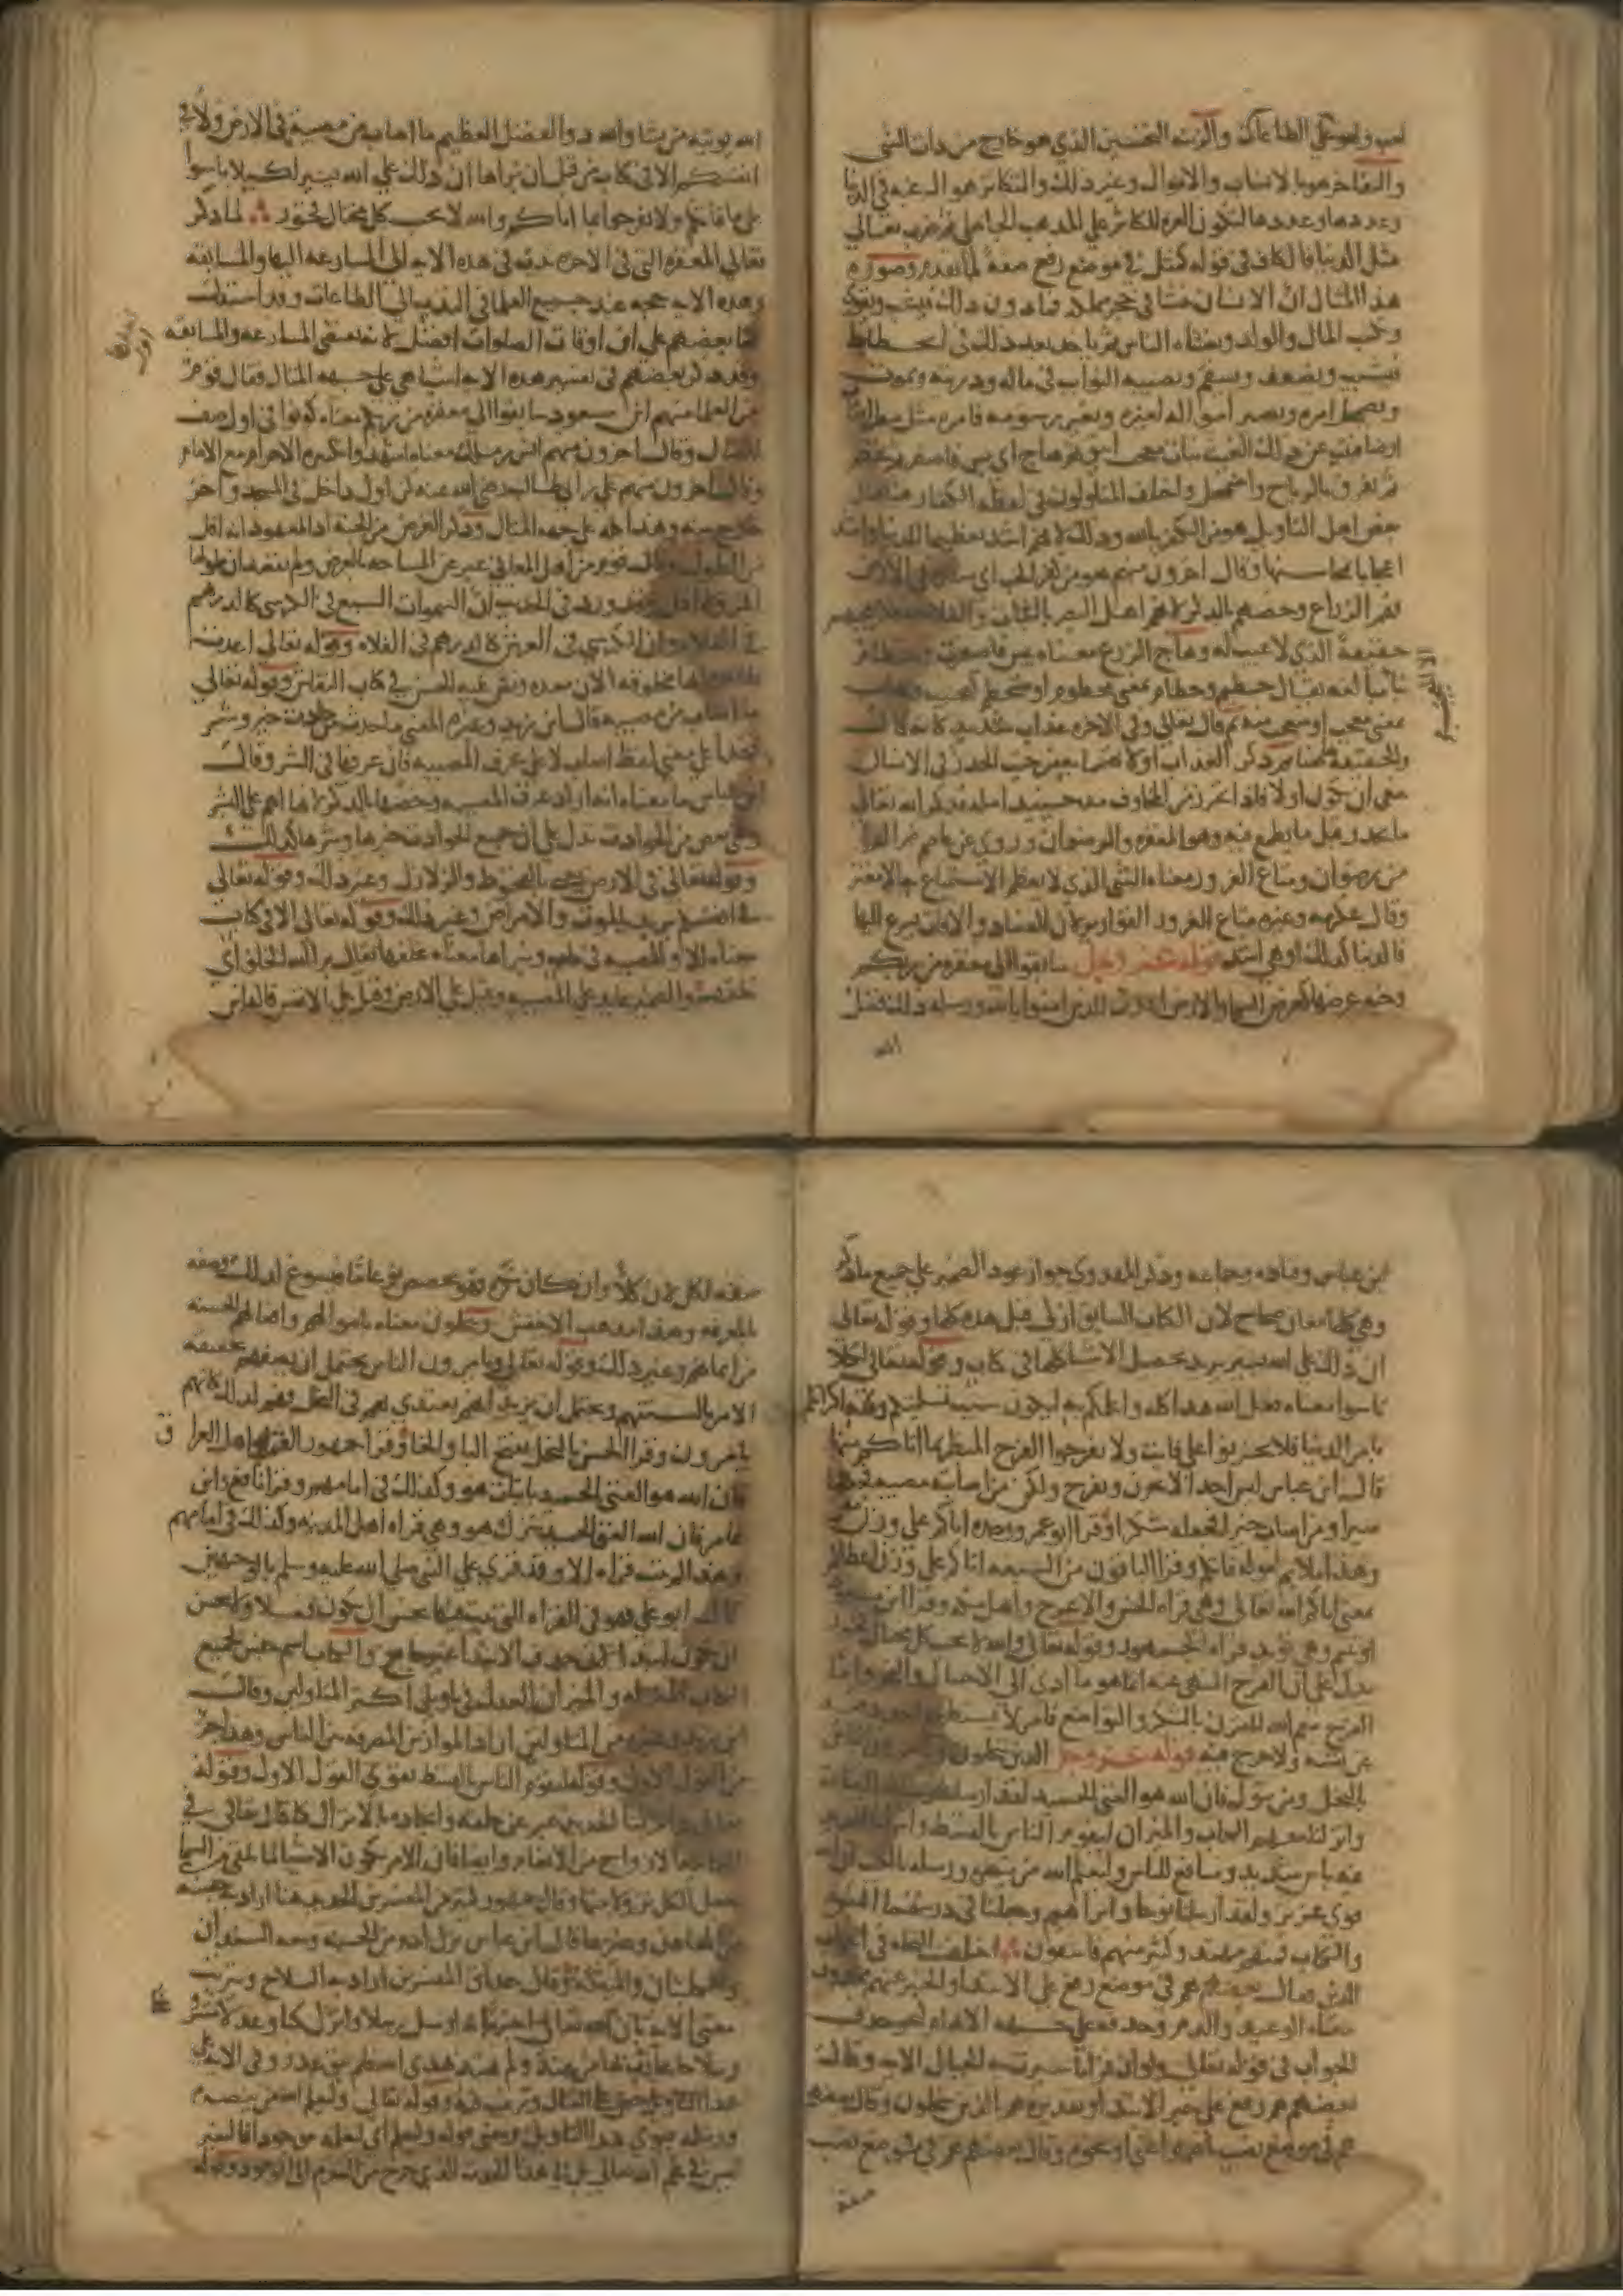 لعب ولهو على الطاعات والزينة التحسين الذي هو خارج من ذات الشي
والتفاخر هو بالانساب والاموال وغير ذلك والتكاثر هو الرغبة في الدنيا
وعددها لتكون العزة للكاثر على المذهب الجاهلي ثم ضرب تعالى
مثل الدنيا فالكاف في قوله كمثل في موضع رفع صفة لما تقدم وصورة
هذا المثال ان الانسان ينشا في حجر مملكة فما دون ذلك فيشب ويقوى
وكسب المال والولد ويغشاه الناس ثم ياخذ بعد ذلك في انحطاط
فيشيب ويضعف ويسقم وتصيبه النوايب في ماله وذريته ويموت
ويضمحل امره وتصير امواله لغيره وتغير رسومه فامره مثل مطر اصاب
ارضا فنبت عن ذلك الغيث نبات معجب انيق ثم هاج اي يبس واصفر ثم تحطم
ثم تفرق بالرياح واضمحل واختلف المتاولون في لفظة الكفار هنا فقال
بعض اهل التاويل هو من الكفر بالله وذلك لانهم اشد تعظيما للدنيا واشد
اعجابا بمحاسنها وقال اخرون منهم هو من كفر الحب اي ستره في الارض
فهم الزراع وخصهم بالذكر لانهم اهل البصر بالنبات والفلاحة فلا يعجبهم
حقيقة الذي لا عيب له وهاج الزرع معناه يبس واصفر وحطام
بناء مبالغة يقال حطيم وحطام بمعنى محطوم او متحطم كعجيب وعجاب
بمعنى معجب او متعجب منه ثم قال تعالى وفي الاخرة عذاب شديد كانه قال
والحقيقة هاهنا ثم ذكر العذاب اولا تهمما به من حيث الحذر في الانسان
ينبغي ان يكون اولا فاذا تحرز من المخاوف مد حينئذ امله فذكر الله تعالى
ما يحذر قبل ما يطمع فيه وهو المغفرة والرضوان وروي عن عاصم ضم الراء
من رضوان ومتاع الغرور معناه الشي الذي لا يعظم الاستمتاع به الا مغتر
وقال عكرمة وغيره متاع الغرور القوارير لان الفساد والافات يسرع اليها
فالدنيا كذلك او هي اشد قوله عز وجل سابقوا الى مغفرة من ربكم
وجنة عرضها كعرض السما والارض اعدت للذين امنوا بالله ورسله ذلك فضل
الله
الله يوتيه من يشا والله ذو الفضل العظيم ما اصاب من مصيبة في الارض ولا في
انفسكم الا في كتاب من قبل ان نبراها ان ذلك على الله يسير لكيلا تاسوا
على ما فاتكم ولا تفرحوا بما اتاكم والله لا يحب كل مختال فخور لما ذكر
تعالى المغفرة التي في الاخرة ندب في هذه الاية الى المسارعة اليها والمسابقة
وهذه الاية حجة عند جميع العلما في الندب الى الطاعات وقد استدل
بها بعضهم على ان اول اوقات الصلوات افضل لانه يقتضي المسارعة والمسابقة
وقد ذكر بعضهم في تفسير هذه الاية اشيا هي على جهة المثال فقال قوم
من العلما منهم ابن مسعود سابقوا الى مغفرة من ربكم معناه كونوا في اول صف
القتال وقال اخرون منهم انس بن مالك معناه اشهدوا تكبيرة الاحرام مع الامام
وقال اخرون منهم علي بن ابي طالب رضي الله عنه كن اول داخل في المسجد واخر
خارج منه وهذا كله على جهة المثال وذكر العرض من الجنة اذ المعهود انه اقل
من الطول وقال قوم من اهل المعاني عبر عن المساحة بالعرض ولم يقصد ان طولها
اكثر ولا اقل وقد ورد في الحديث ان السموات السبع في الكرسي كالدرهم
في الفلاة وان الكرسي في العرش كالدرهم في الفلاة وقوله تعالى اعدت
ظاهره انها مخلوقة الان معدة ونص عليه الحسن في كتاب النقاش وقوله تعالى
ما اصاب من مصيبة قال ابن زيد وغيره المعنى ما حدث من حادث خير وشر
فهذا على معنى لفظ اصاب لا على عرف المصيبة فان عرفها في الشر وقال
ابن عباس ما معناه انه اراد عرف المصيبة وخصها بالذكر لانها اهم على البشر
وهي بعض من الحوادث تدل على ان جميع الحوادث خيرها وشرها كذلك
وقوله تعالى في الارض يعني بالقحوط والزلازل وغير ذلك وقوله تعالى
في انفسكم يريد بالموت والامراض وغير ذلك وقوله تعالى الا في كتاب
معناه الا والمصيبة في كتاب ونبراها معناه نخلقها يقال برا الله الخلق اي
خلقهم والضمير عايد على المصيبة وقيل على الارض وقيل على الانفس قاله ابن
ابن عباس وقتادة وجماعة وذكر المهدوي جواز عود الضمير على جميع ما ذكر
وهي كلها معان صحاح لان الكتاب السابق ازلي قبل هذه كلها وقوله تعالى
ان ذلك على الله يسير يريد تحصيل الاشيا كلها في كتاب وقوله تعالى لكيلا
تاسوا معناه فعل الله هذا كله واعلمكم به ليكون سبب تسليتكم وقلة اكتراثكم
بامر الدنيا فلا تحزنوا على فايت ولا تفرحوا الفرح المبطر بما اتاكم منها
قال ابن عباس ليس احد الا يحزن ويفرح ولكن من اصابته مصيبة فجعلها
صبرا ومن اصابه خير فجعله شكرا وقرا ابو عمرو وحده اتاكم على وزن
وهذا ملايم لقوله فاتكم وقرا الباقون من السبعة اتاكم على وزن اعطاكم
بمعنى اتاكم الله تعالى وهي قراة الحسن والاعرج واهل مكة وقرا ابن مسعود
اوتيتم وهي تؤيد قراة الجمهور وقوله تعالى والله لا يحب كل مختال فخور
يدل على ان الفرح المنهي عنه انما هو ما ادى الى الاختيال والفخر واما
الفرح بنعم الله المقترن بالشكر والتواضع فامر لا يستطيع احد دفعه
عن نفسه ولا حرج فيه قوله عز وجل الذين يبخلون ويامرون الناس
بالبخل ومن يتول فان الله هو الغني الحميد لقد ارسلنا رسلنا بالبينات
وانزلنا معهم الكتاب والميزان ليقوم الناس بالقسط وانزلنا الحديد
فيه باس شديد ومنافع للناس وليعلم الله من ينصره ورسله بالغيب ان الله
قوي عزيز ولقد ارسلنا نوحا وابراهيم وجعلنا في ذريتهما النبوة
والكتاب فمنهم مهتد وكثير منهم فاسقون اختلف النحاة في اعراب
الذين فقال بعضهم هم في موضع رفع على الابتداء والخبر عنهم محذوف
معناه الوعيد والذم وحذفه على جهة الابهام كنحو حذف
الجواب في قوله تعالى ولو ان قرانا سيرت به الجبال الاية وقال
بعضهم هم رفع على خبر الابتداء تقديره هم الذين يبخلون وقال بعضهم
هم في موضع نصب باضمار اعني او نحوه وقال بعضهم هم في موضع نصب
صفة
صفة لكل لان كلا وان كان نكرة فهو يخصص نوعا ما فيسوغ لذلك وصفه
بالمعرفة وهذا مذهب الاخفش ويبخلون معناه باموالهم وافعالهم الحسنة
من ايمانهم وغير ذلك وقوله تعالى ويامرون الناس يحتمل ان يصفهم بحقيقة
الامر بالسنتهم ويحتمل ان يريد انهم يقتدى بهم في البخل فهم لذلك كانهم
يامرون وقرا الحسن بالبخل بفتح البا والخا وقرا جمهور القراء واهل العراق
فان الله هو الغني الحميد باثبات هو وكذلك في امامهم وقرا نافع وابن
عامر فان الله الغني الحميد بترك هو وهي قراة اهل المدينة وكذلك في امامهم
وهذا لم يثبت قراة الا وقد قري على النبي صلى الله عليه وسلم بالوجهين
قال ابو علي فهو في القراة التي ثبت فيها يحسن ان يكون فصلا ولا يحسن
ان يكون ابتداء لان حذف الابتداء غير سايغ والكتاب اسم جنس لجميع
الكتب المنزلة والميزان العدل في تاويل اكثر المتاولين وقال
ابن زيد وغيره من المتاولين اراد الموازين المصرفة بين الناس وهذا جزء
من القول الاول وقوله ليقوم الناس بالقسط يقوي القول الاول وقوله
تعالى وانزلنا الحديد عبر عن خلقه وايجاده بالانزال كما قال تعالى في
الثمانية الازواج من الانعام وايضا فان الامر بكون الاشيا لما تلقى من السما
جعل الكل نزولا منها وقال جمهور كثير من المفسرين الحديد هنا اراد به جنسه
من المعادن وغيرها وقال ابن عباس نزل ادم من الجنة ومعه السندان
والكلبتان والميقعة وقال حذاق المفسرين اراد به السلاح ويترتب
معنى الاية بان الله تعالى اخبر انه ارسل رسلا وانزل كتبا وعدلا مشروعا
وسلاحا يحارب به من عند ولم يهتد بهدى الله فلم يبق عذر وفي الاية على
هذا التاويل حض على القتال وترغيب فيه وقوله تعالى وليعلم الله من ينصره
ورسله يقوي هذا التاويل ومعنى قوله وليعلم اي ليعلمه موجودا فالتغير
ليس في علم الله تعالى بل في هذا الحدث الذي خرج من العدم الى الوجود وقوله